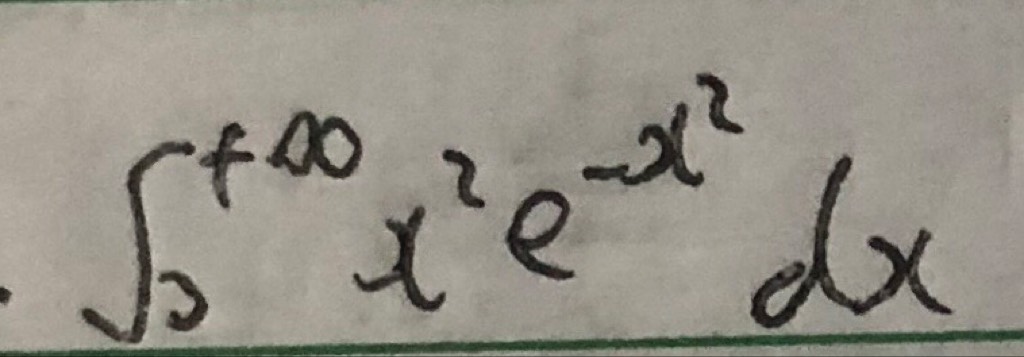 ∫₀^{+∞} x² e^{-x²} dx